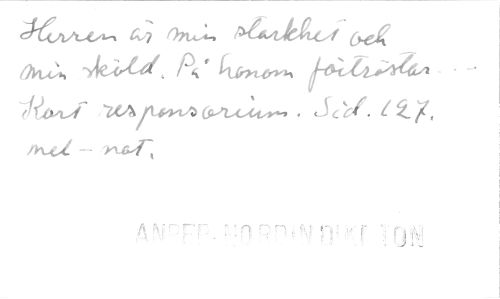 Herren är min starkhet och
min sköld. På honom förtröstar - - -
Kort responsorium. Sid. 127.
mel-not.